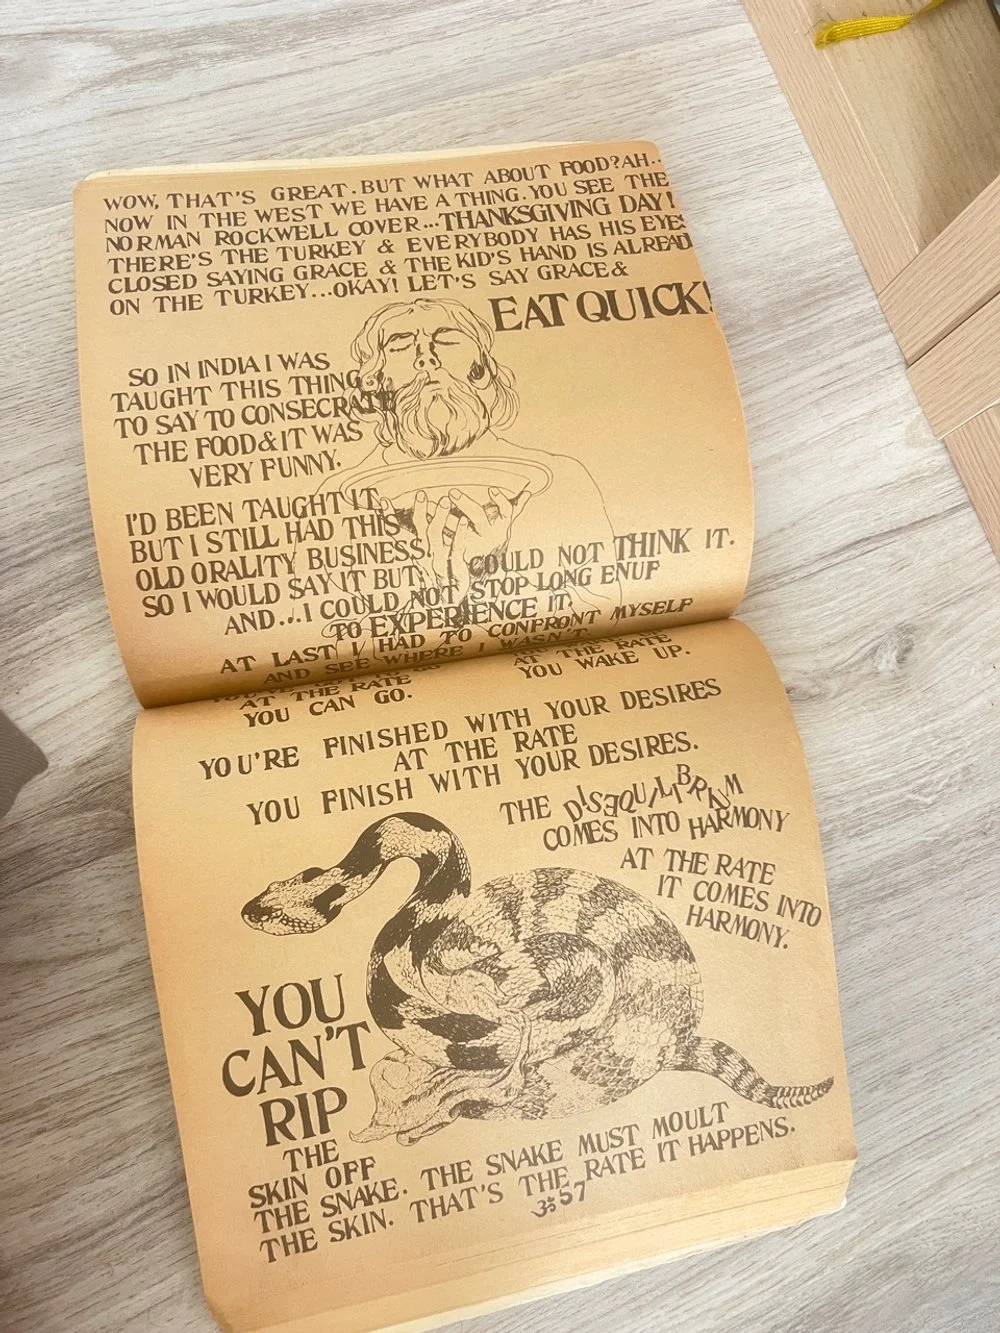 WOW, THAT'S GREAT. BUT WHAT ABOUT FOOD? AH..
NOW IN THE WEST WE HAVE A THING. YOU SEE THE
NORMAN ROCKWELL COVER... THANKSGIVING DAY!
THERE'S THE TURKEY & EVERYBODY HAS HIS EYES
CLOSED SAYING GRACE & THE KID'S HAND IS ALREAD
ON THE TURKEY...OKAY! LET'S SAY GRACE &
EAT QUICK!
SO IN INDIA I WAS
TAUGHT THIS THING
TO SAY TO CONSECRATE
THE FOOD & IT WAS
VERY FUNNY.
I'D BEEN TAUGHT IT,
BUT I STILL HAD THIS
OLD ORALITY BUSINESS.
SO I WOULD SAY IT BUT, I COULD NOT THINK IT.
AND... I COULD NOT STOP LONG ENUF
TO EXPERIENCE IT.
AT LAST I HAD TO CONFRONT MYSELF
AND SEE WHERE I WASN'T.
AT THE RATE
YOU CAN GO.
AT THE RATE
YOU WAKE UP.
YOU'RE FINISHED WITH YOUR DESIRES
AT THE RATE
YOU FINISH WITH YOUR DESIRES.
THE DISEQUILIBRIUM
COMES INTO HARMONY
AT THE RATE
IT COMES INTO
HARMONY.
YOU
CAN'T
RIP
THE
SKIN OFF
THE SNAKE. THE SNAKE MUST MOULT
THE SKIN. THAT'S THE RATE IT HAPPENS.
ॐ 57